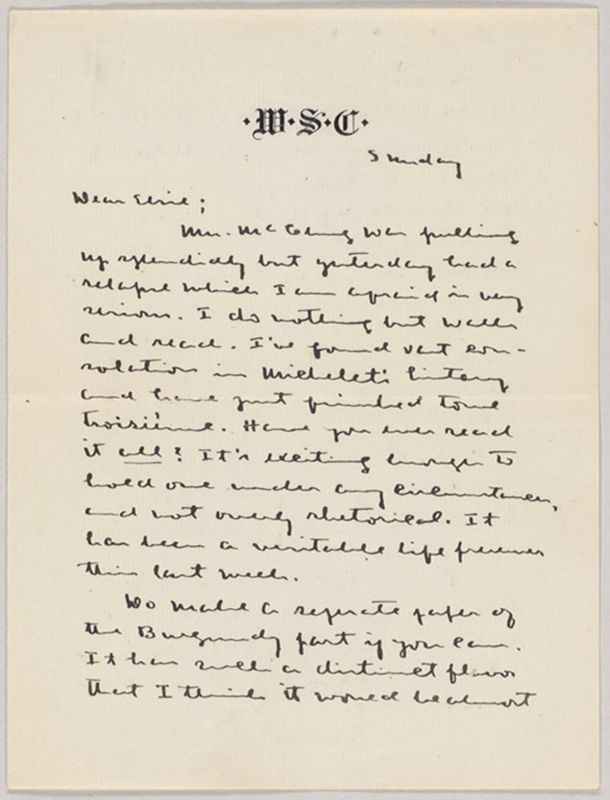 ·W·S·C·
Sunday
Dear Elsie;
Mrs. McClung was pulling
up splendidly but yesterday had a
relapse which I am afraid is very
serious. I do nothing but walk
and read. I've found vast con-
solation in Michelet's history
and have just finished tome
troisième. Have you ever read
it all? It's exciting enough to
hold one under any circumstances,
and not overly rhetorical. It
has been a veritable life preserver
this last week.
Do make a seperate paper of
the Burgundy part if you can.
It has such a distinct flavor
that I think it would be almost